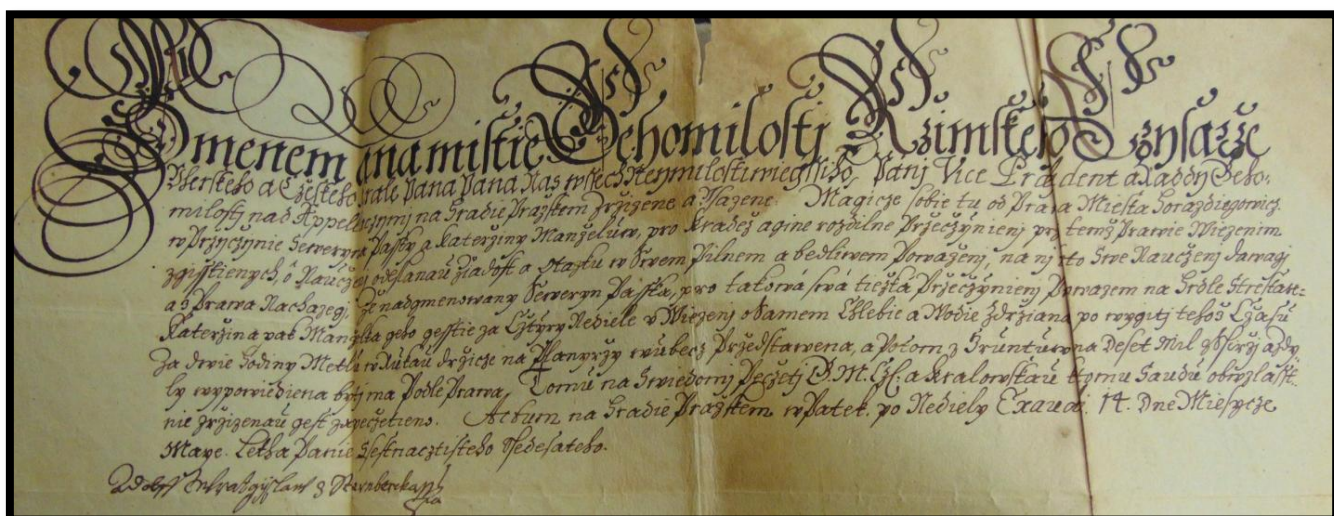 Gmenem a namistie Gehomilosti Rzimskeho Czysarze
Uherskeho a Czeskeho Krale Pana Pana Nas wssech Neymilostiwiegssiho, Panj Vice Præsident a Raddy Geho:
milosti nad Appellacymi na Hradie Prazskem zrzizene a Usazene. Magicze sobie tu od Prawa Miesta Horazdiegowicz.
w Przyczynie Seweryna Passky a Katerziny Manzeluw, pro kradeze a gine rozdilne Przeczynienj przi temz Prawie Wiezenim
zgisstienych, o Nauczenj odeslanau Ziadost a Otazku w Swem Pilnem a bedliwem Powazenj, na nj toto Swe Nauczenj dawagj
a z Prawa Nachazegj, Ze nadgmenowany Seweryn Passka, pro takowa swa tiezka Przeczynienj Prowazem na Hrdle Strestan:
Katerzina pak Manzelka geho gesstie za Cztyry Nediele v Wiezenj o Samem Chlebie a Wodie Zdrziana po wygitj tehoz Czasu
Za dwie Hodiny Metlu w Rukau drzicze na Planyrzy wubecz Przedstawena, a Potom z Gruntuw na Deset Mil zsskrz a zdy
ly wypowiediena byti ma Podle Prawa. Tomu na Swiedomj Peczetj G. M. Cz. a Kralowskau k tomu Saudu obwzlasst:
nie zrzizenau gest zapeczetieno. Actum na Hradie Prazskem w Patek po Nediely Exaudi 14. Dne Miesycze
Maye. Letha Panie Ssestnacztisteho Ssedesateho.
Adolff Wratyslaw z Sternbercka